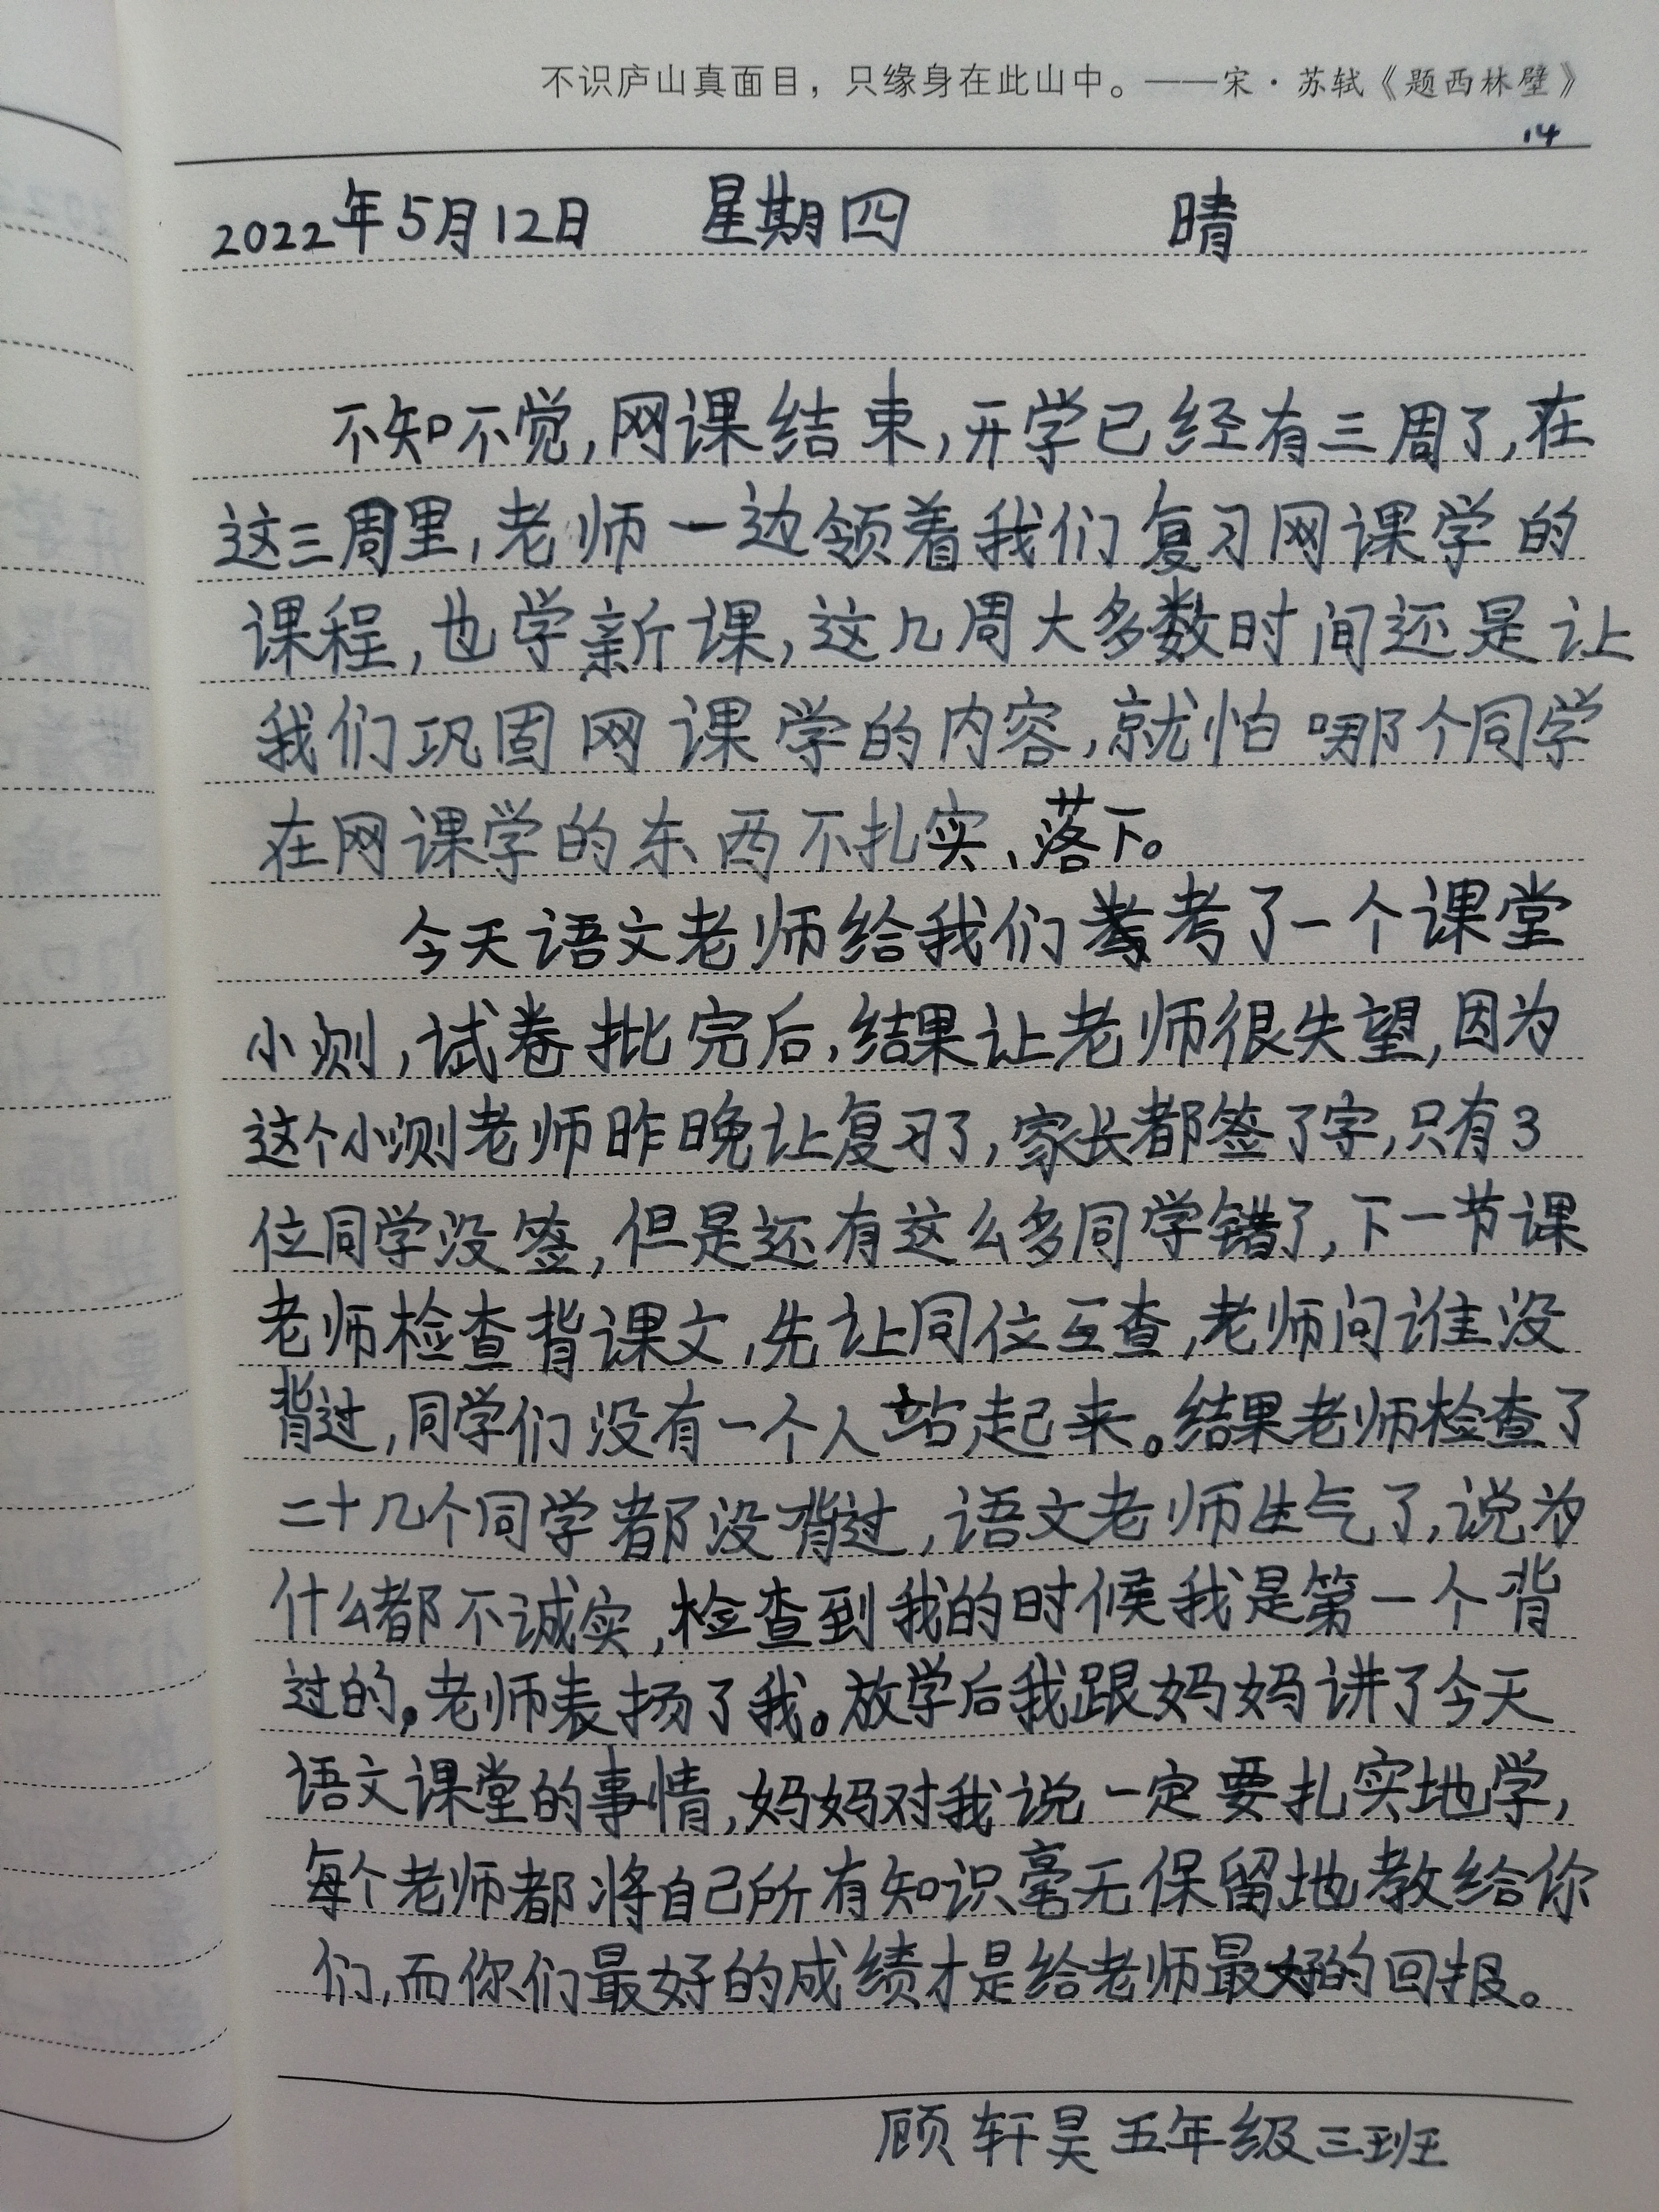 不识庐山真面目，只缘身在此山中。——宋·苏轼《题西林壁》
14
2022年5月12日 星期四 晴
不知不觉,网课结束,开学已经有三周了,在
这三周里,老师一边领着我们复习网课学的
课程,也学新课,这几周大多数时间还是让
我们巩固网课学的内容,就怕哪个同学
在网课学的东西不扎实、落下。
今天语文老师给我们考了一个课堂
小测,试卷批完后,结果让老师很失望,因为
这个小测老师昨晚让复习了,家长都签了字,只有3
位同学没签,但是还有这么多同学错了,下一节课
老师检查背课文,先让同位互查,老师问谁没
背过,同学们没有一个人站起来。结果老师检查了
二十几个同学都没背过,语文老师生气了,说为
什么都不诚实,检查到我的时候我是第一个背
过的。老师表扬了我。放学后我跟妈妈讲了今天
语文课堂的事情,妈妈对我说一定要扎实地学,
每个老师都将自己所有知识毫无保留地教给你
们,而你们最好的成绩才是给老师最好的回报。
顾轩昊五年级三班